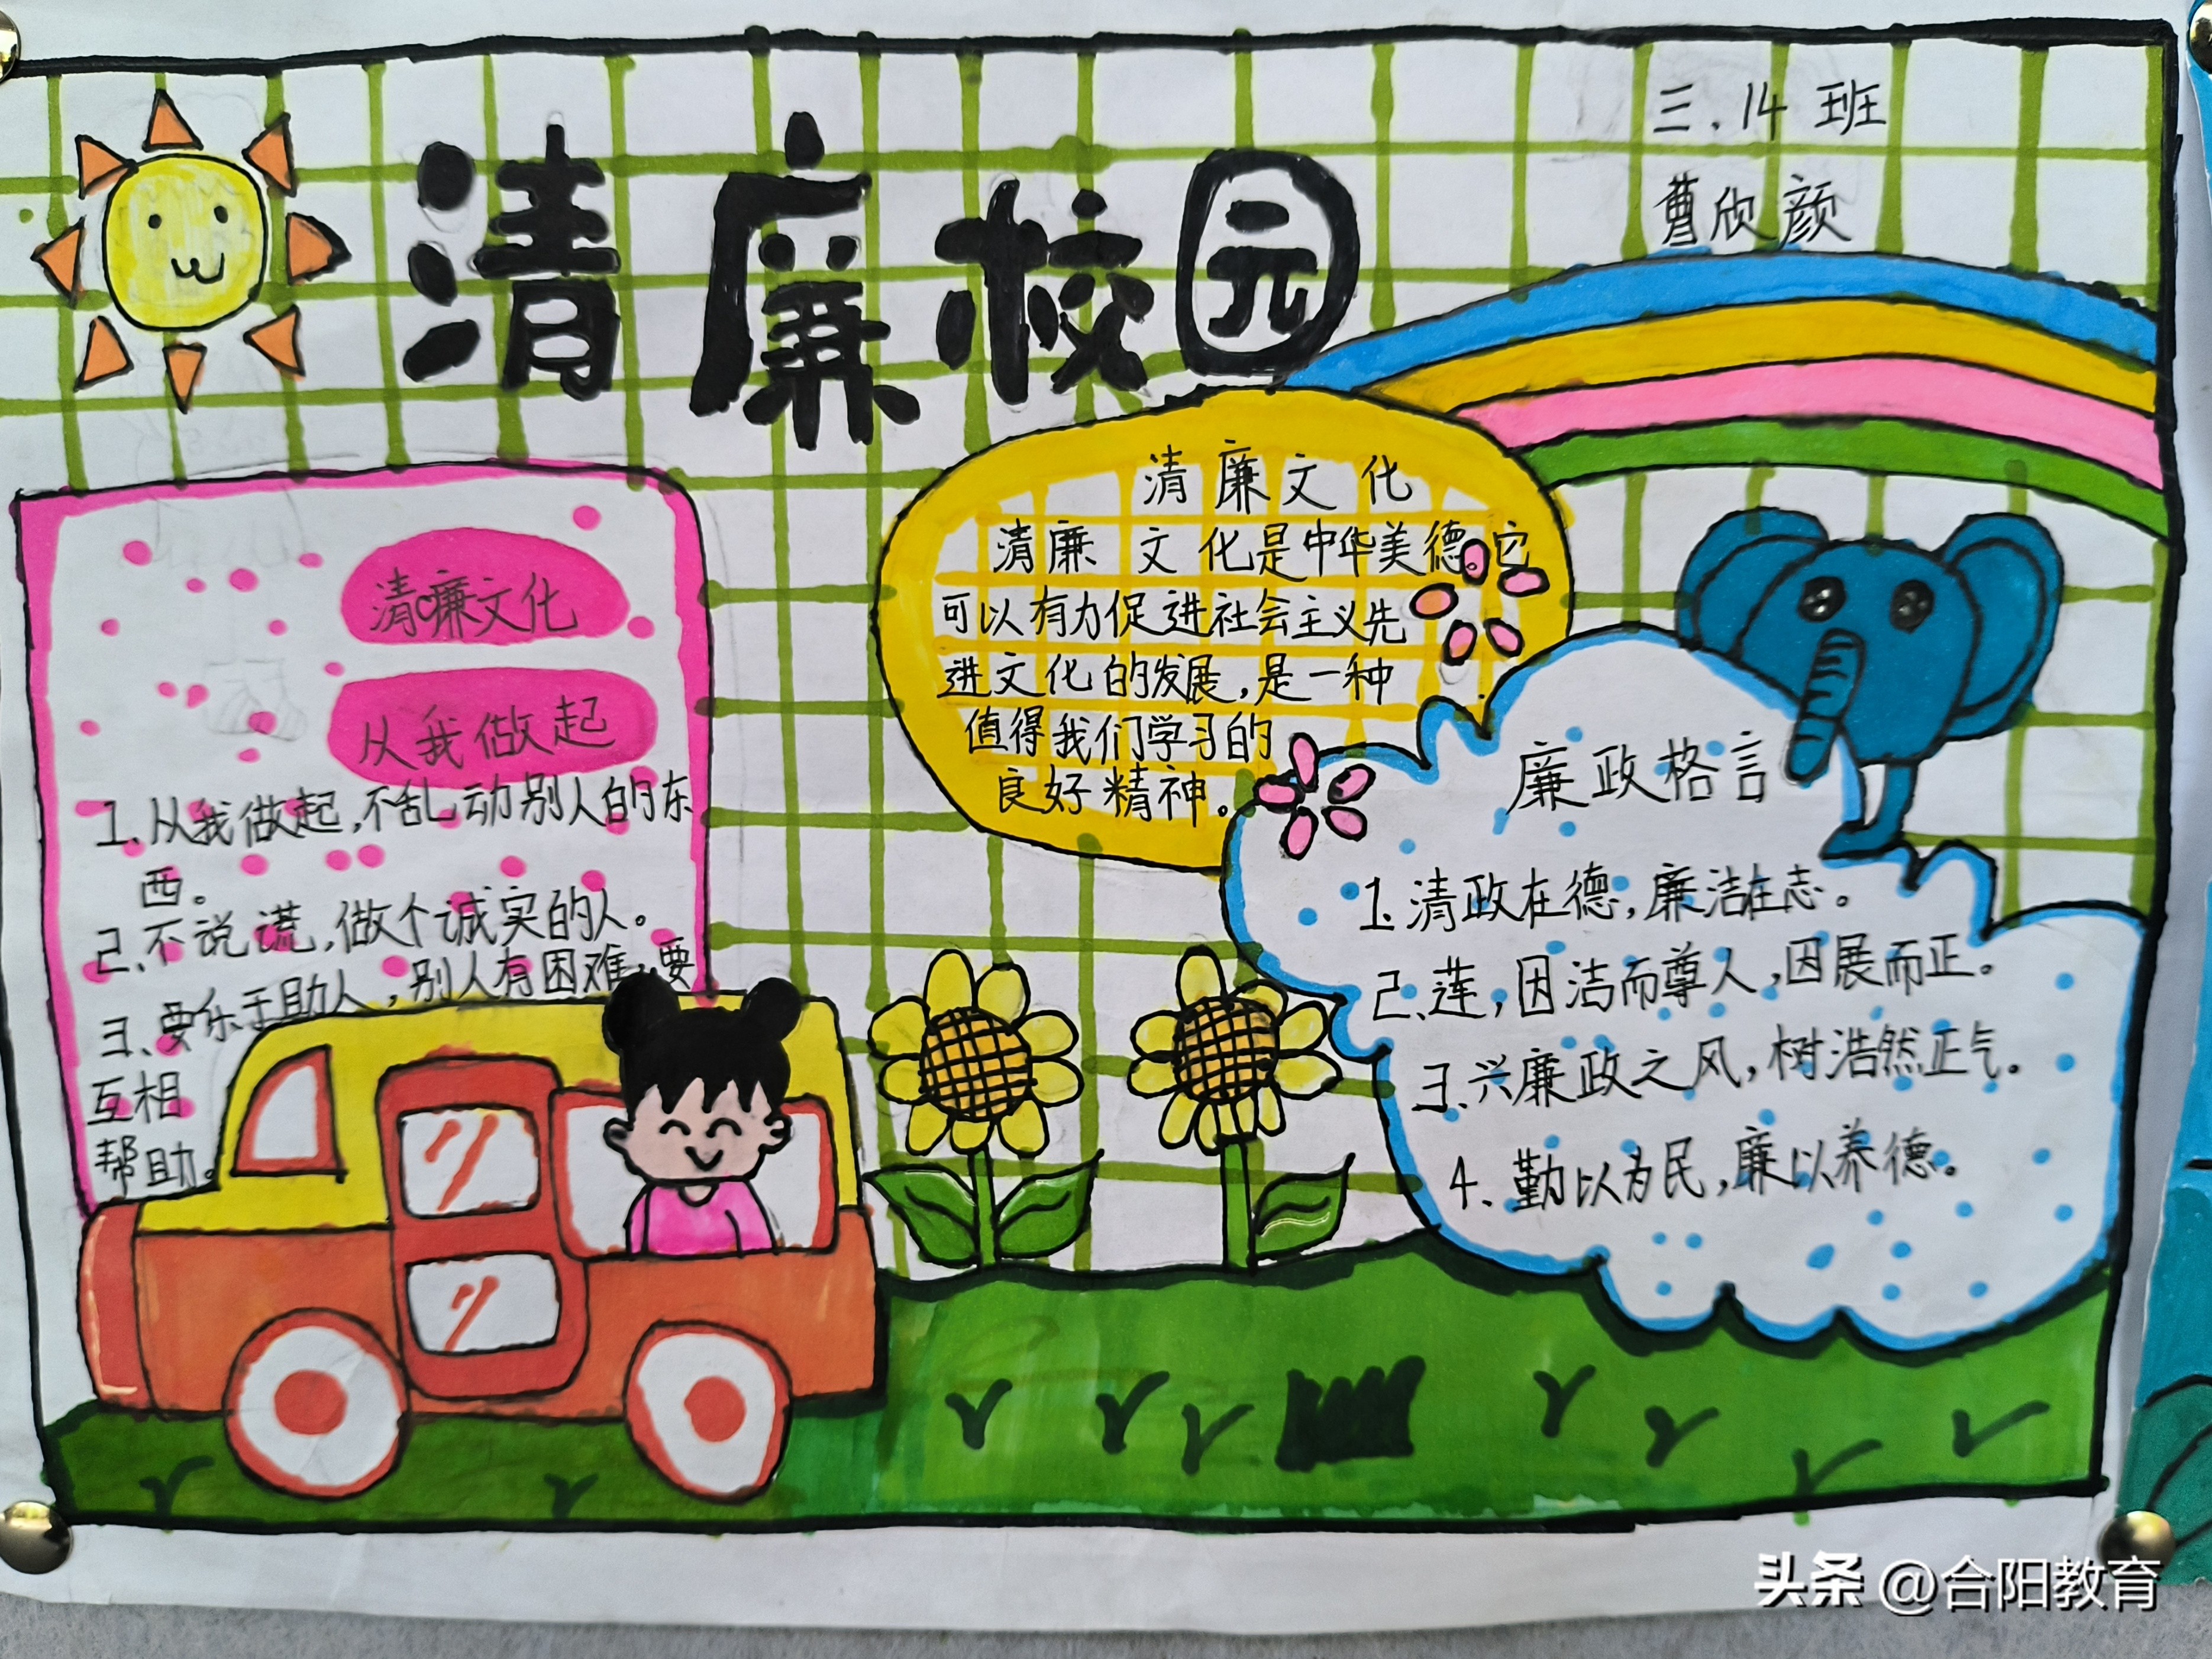 清廉校园
三.14班
曹欣颜
清廉文化
从我做起
1.从我做起,不乱动别人的东
西。
2、不说谎,做个诚实的人。
3、要乐于助人,别人有困难,要
互相
帮助。
清廉文化
清廉文化是中华美德。它
可以有力促进社会主义先
进文化的发展,是一种
值得我们学习的
良好精神。
廉政格言
1.清政在德,廉洁在志。
2、莲,因洁而尊人,因展而正。
3、兴廉政之风,树浩然正气。
4、勤以为民,廉以养德。
头条 @合阳教育